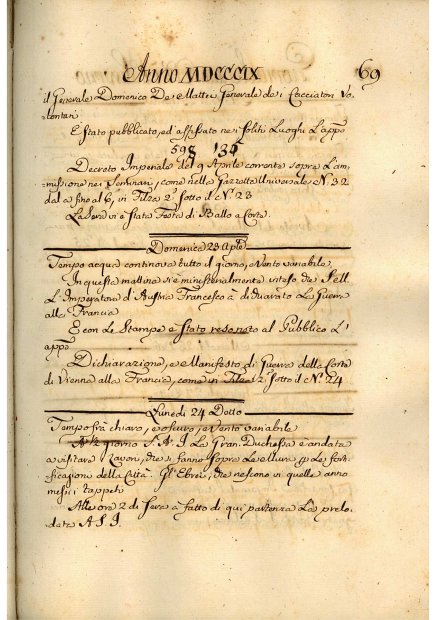 Anno MDCCCIX 69
il Generale Domenico De Mattei Generale de i Cacciatori Vo-
lontari
È stato pubblicato, ed affissato nei soliti Luoghi L'appo
598 136
Decreto Imperiale del 9 Aprile corrente sopra L'am-
missione nei Seminari, come nella Gazzetta Universale N.° 32
dal a fino al 6, in Filza 2.a sotto il N.° 23
La Sera vi è stata Festa di Ballo a Corte.
Domenica 23 Aple
Tempo acqua continova tutto il giorno, e Vento variabile
In questa mattina si è ministerialmente inteso che
L'Imperatore d'Austria Francesco à dichiarato La Guerra
alla Francia
E con Le Stampe è stato reso noto al Pubblico L'
appo
Dichiarazione, e Manifesto di Guerra della Corte
di Vienna alla Francia, come in Filza 2.a sotto il N.° 24
Lunedì 24 Detto
Tempo frà chiaro, e oscuro, e Vento variabile
giorno S. A. I. La Gran Duchessa è andata
a visitare i Lavori, che si fanno sopra Le Mura p Le forti-
ficazione della Città. Gl'Ebrei, che nescono vi quelle anno
messi i tappeti
Alle ore 2 di Sera à fatto di qui partenza La prelo-
data A. S. I.